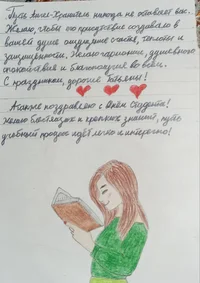 Пусть Ангел-Хранитель никогда не оставляет вас.
Желаю, чтобы его присутствие создавало в
вашей душе ощущение счастья, теплоты и
защищенности. Желаю гармонии, душевного
спокойствия и благополучия во всем.
С праздником, дорогие Татьяны!
Также поздравляю с Днём студента!
Желаю блестящих и крепких знаний, пусть
учебный процесс идёт легко и интересно!